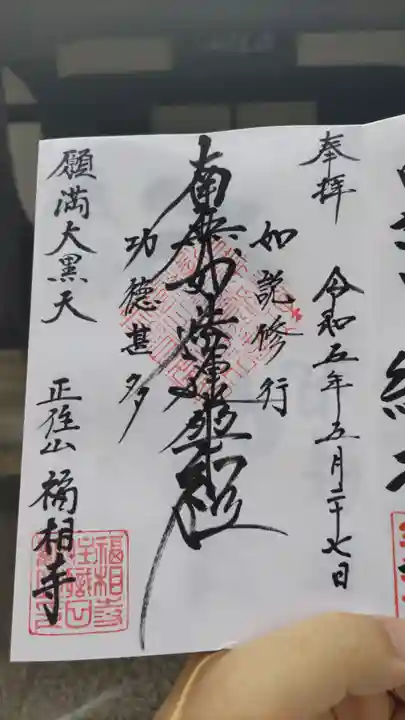 奉拝
令和五年五月二十七日
如説修行
南無妙法蓮華経
功徳甚多
願満大黒天
正住山 福相寺